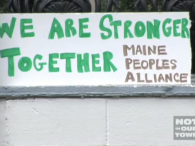 WE ARE STRONGER
TOGETHER
MAINE
PEOPLES
ALLIANCE
NOT
IN OUR
TOWN